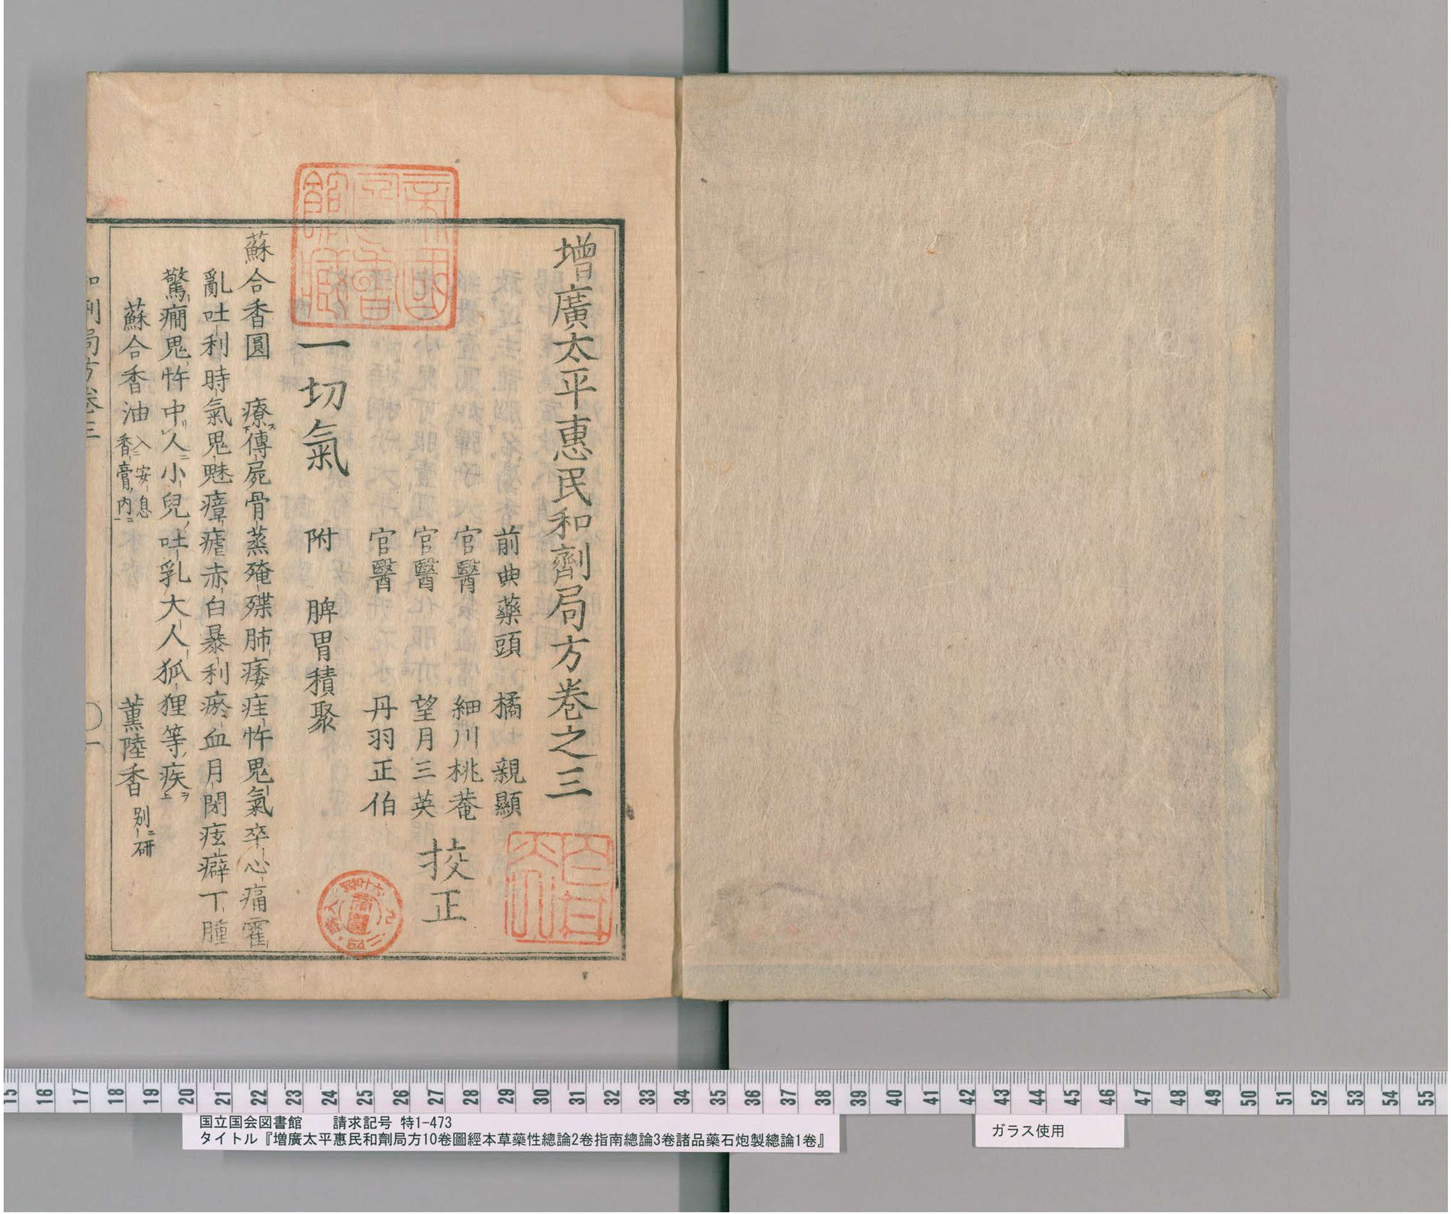 增廣太平惠民和劑局方卷之三
前典藥頭　橘　親顯
官醫　細川桃菴
官醫　望月三英
官醫　丹羽正伯
挍正
一切氣　附　脾胃積聚
蘇合香圓　療傳屍骨蒸殗殜肺痿疰忤鬼氣卒心痛霍
亂吐利時氣鬼魅瘴瘧赤白暴利瘀血月閉痃癖丁腫
驚癎鬼忤中人小兒吐乳大人狐狸等疾
蘇合香油 入安息香膏内　薰陸香 别研
和劑局方卷三
15 16 17 18 19 20 21 22 23 24 25 26 27 28 29 30 31 32 33 34 35 36 37 38 39 40 41 42 43 44 45 46 47 48 49 50 51 52 53 54 55
国立国会図書館　請求記号 特1-473
タイトル『増廣太平惠民和劑局方10卷圖經本草藥性總論2卷指南總論3卷諸品藥石炮製總論1卷』
ガラス使用